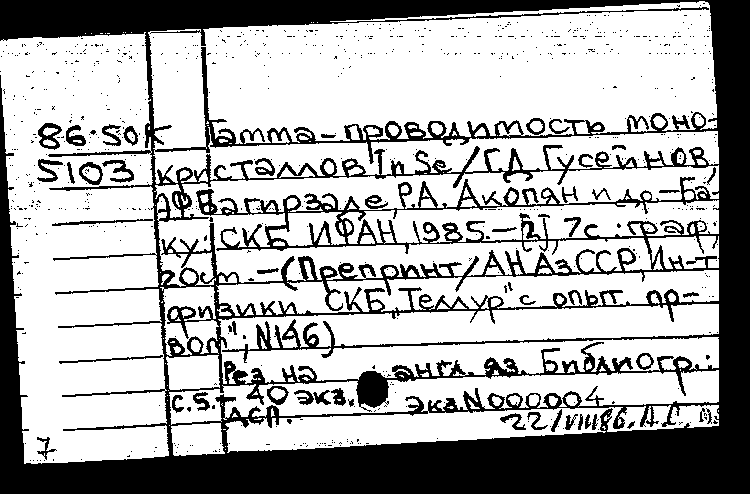 86·50К Гамма-проводимость моно-
5103 кристаллов InSe/Г.Д. Гусейнов,
Э.Ф. Багирзаде, Р.А. Акопян и др.-Ба-
ку: СКБ ИФАН, 1985.-[2], 7с.:граф;
20см.-(Препринт/АН АзССР, Ин-т
физики. СКБ "Теллур" с опыт. пр-
вом"; N146).
Рез. на англ. яз. Библиогр.:
с.5.- 40 экз. Экз.N000004.
ДСП.
22/VIII86. А.С.
7